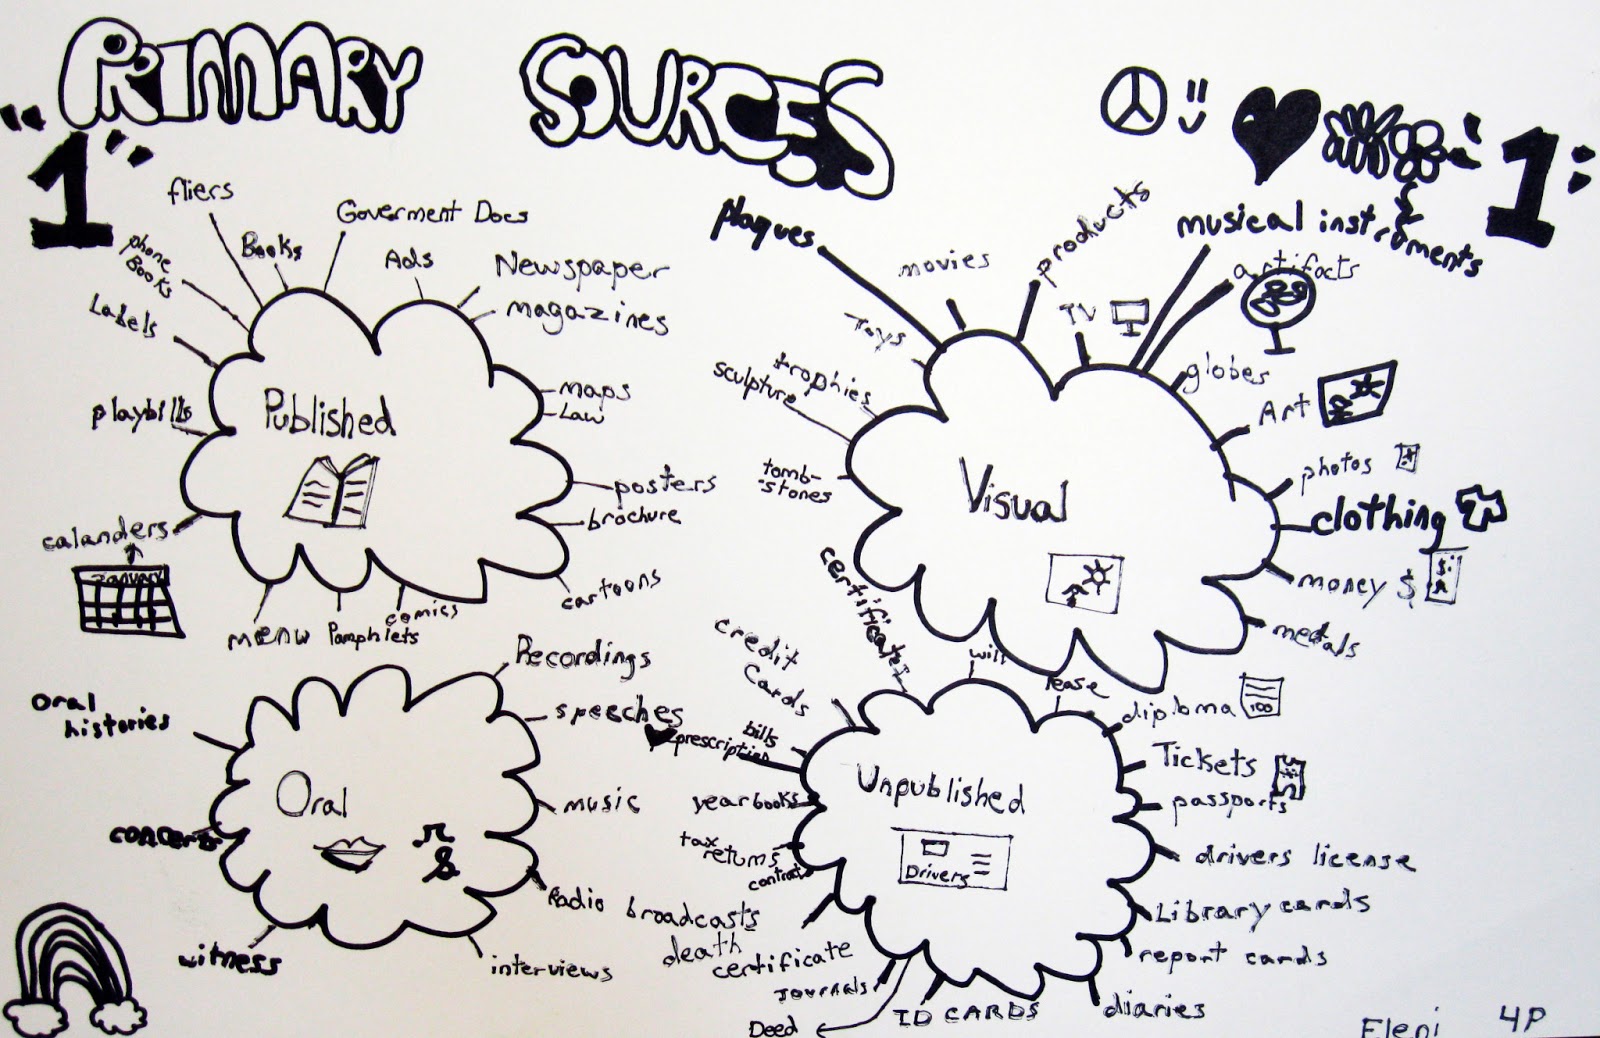 PRIMARY SOURCES
"1"
"1"
fliers
Books
Goverment Docs
Ads
Newspaper
magazines
phone
Books
Labels
playbills
calanders
January
Published
maps
Law
posters
brochure
cartoons
comics
Pamphlets
menu
plaques
movies
products
musical instruments
artifacts
TV
Toys
trophies
sculpture
tomb-
-stones
Visual
globes
Art
photos
clothing
money $
$
medals
Oral
histories
concerts
witness
Oral
Recordings
speeches
music
Radio broadcasts
interviews
certificates
credit
cards
bills
prescription
yearbooks
tax
returns
contracts
death
certificate
Journals
Deed
ID CARDS
Unpublished
Drivers
will
lease
diploma
100
Tickets
passports
drivers license
Library cards
report cards
diaries
Eleni 4P